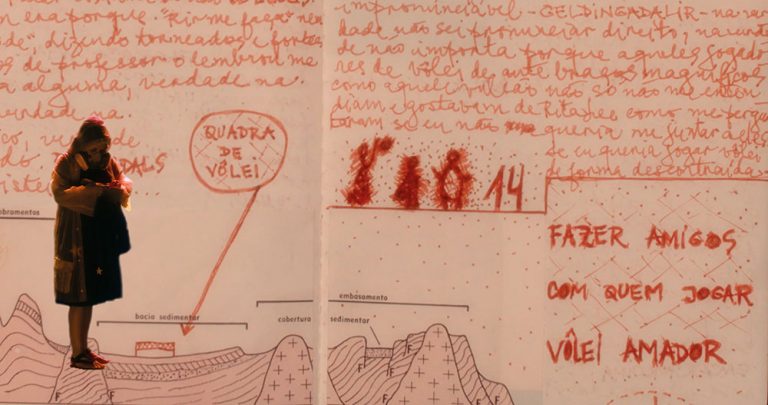 era porque.
dizendo torneados e fortes
de professor o lembrou me
a alguma, verdade na
verdade na.
verdade
QUADRA
DE
VÔLEI
bramentos
bacia sedimentar
impronunciável - GELDINGADALIR - na ver
dade não sei pronunciar direito, na verda
de não importa porque aqueles jogado
res de vôlei de antebraços magníficos
como aquele vulcão não só não me enten
diam e gostavam de Rita Lee como me pergun
taram se eu não queria me juntar a eles
se eu queria jogar vôlei
de forma descontraída.
14
FAZER AMIGOS
COM QUEM JOGAR
VÔLEI AMADOR
embasamento
cobertura sedimentar
F
F
F
F
F